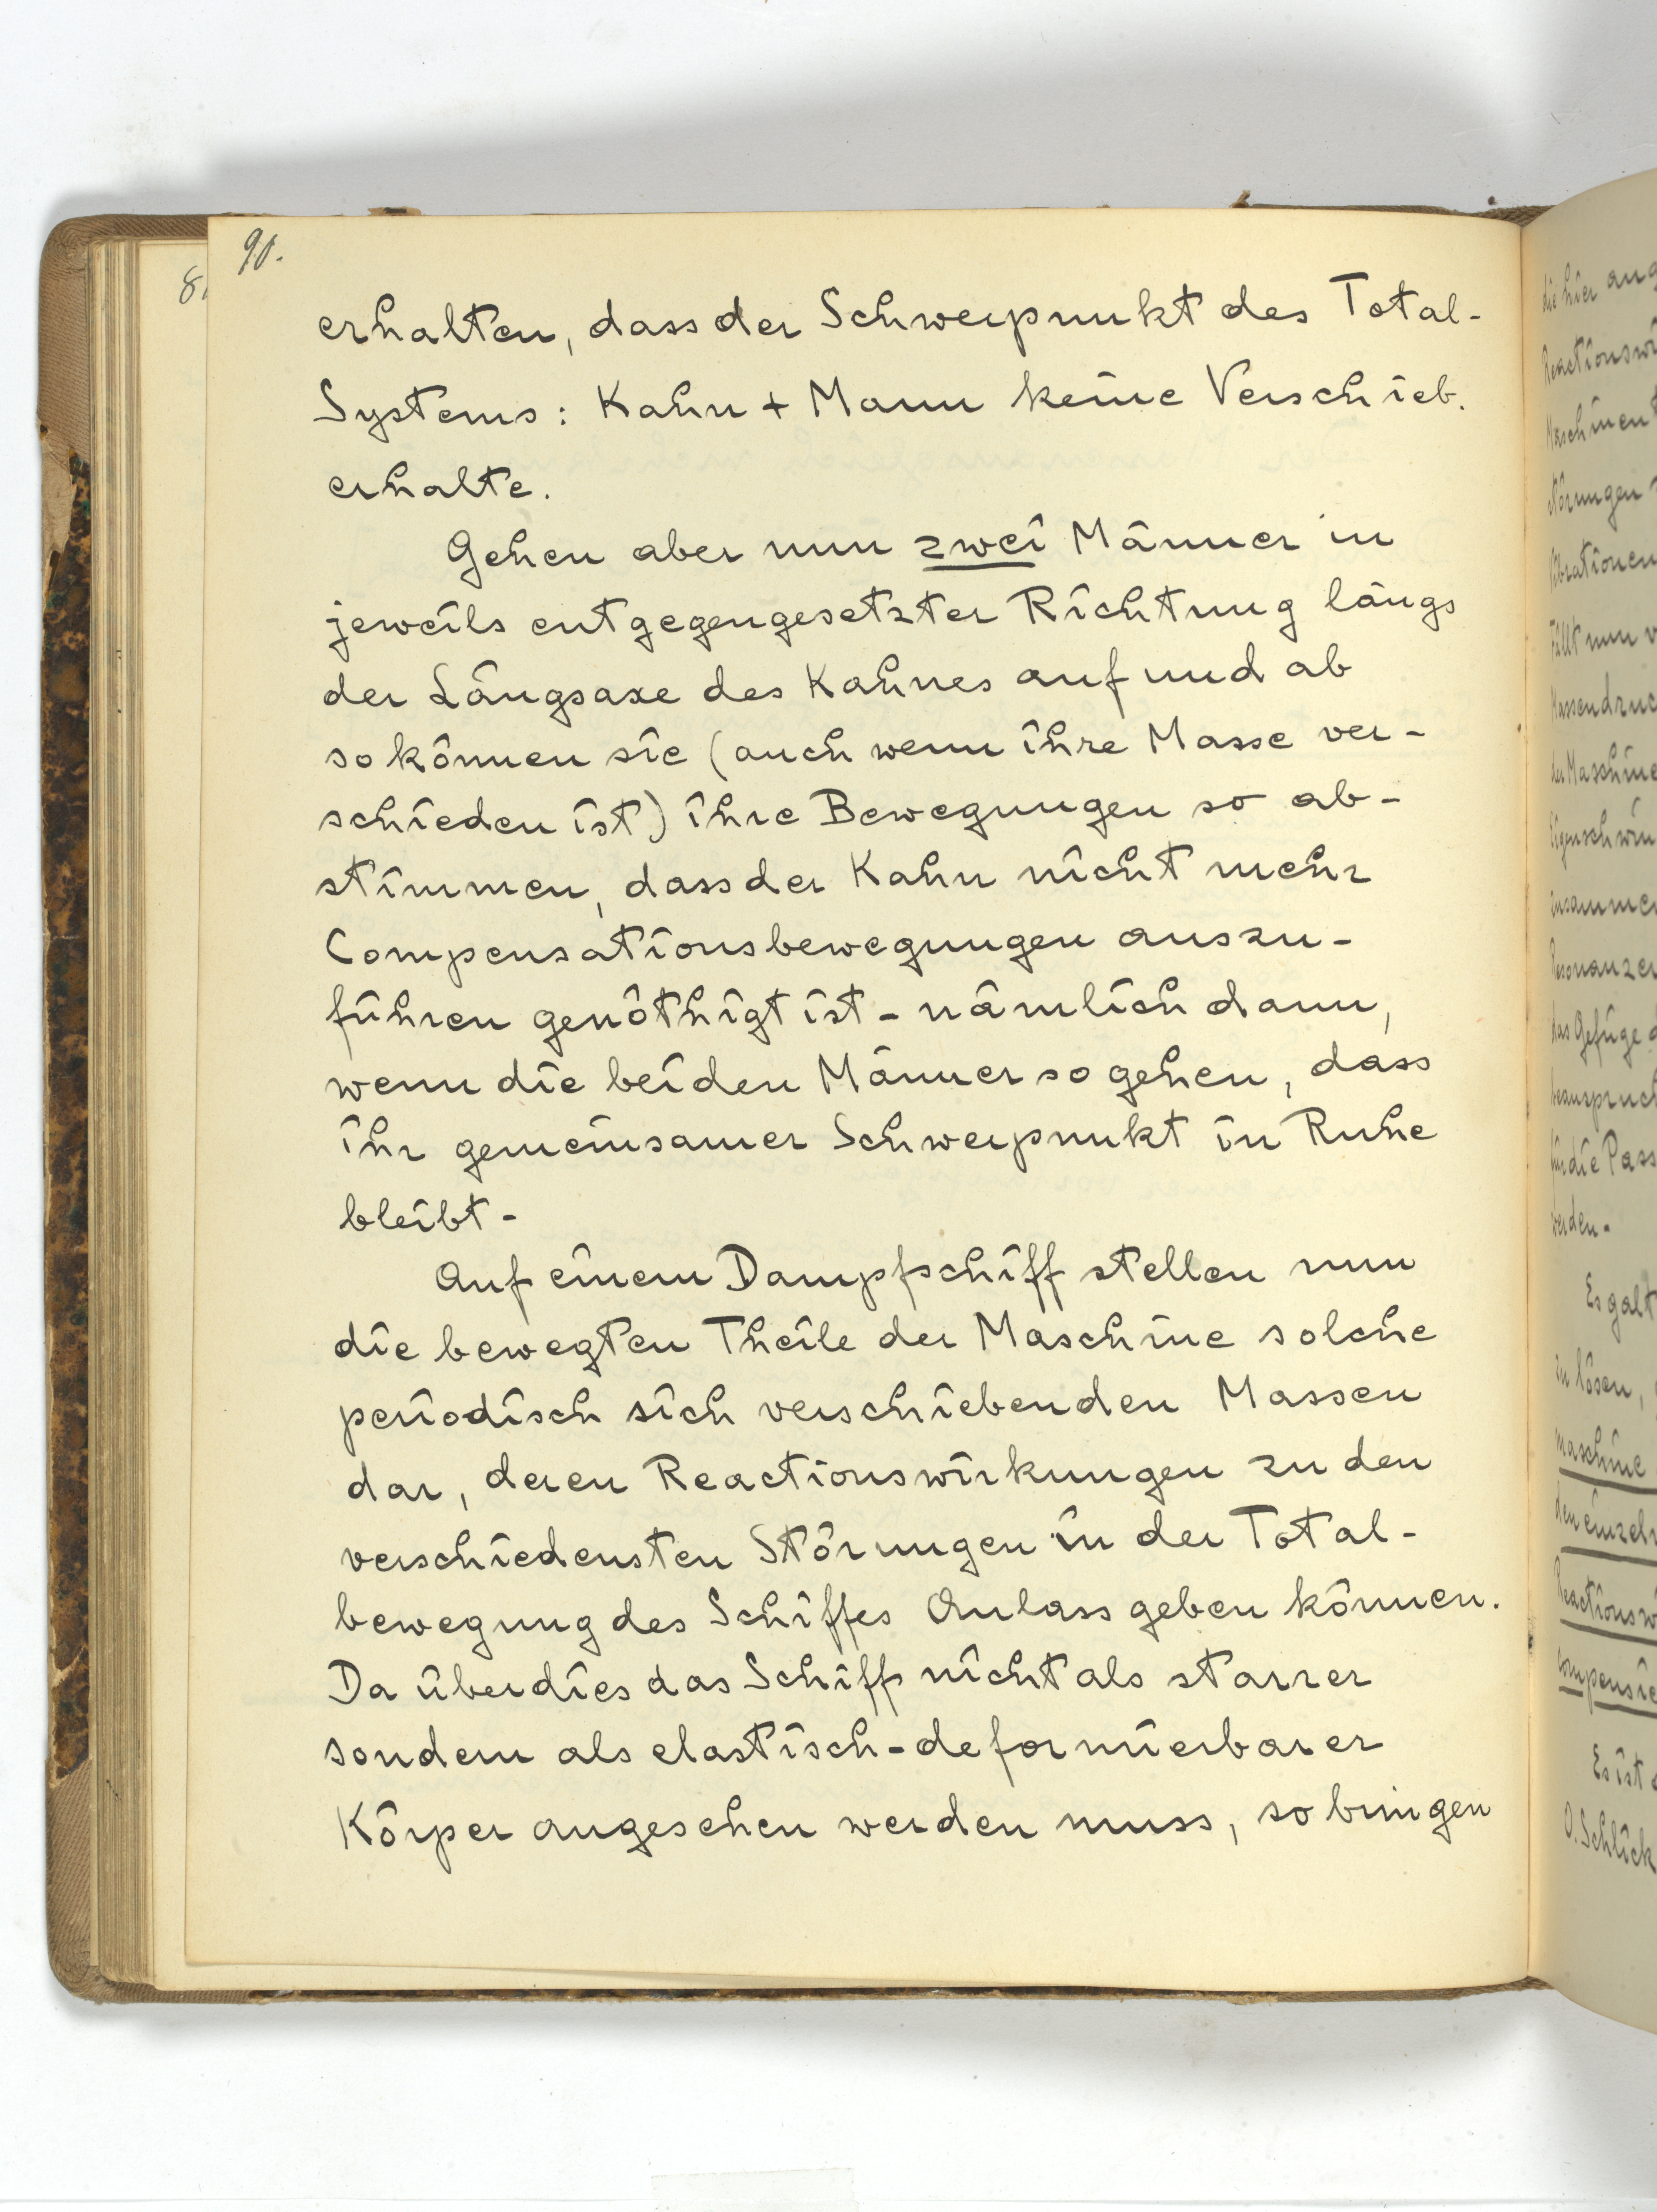 90.
erhalten, dass der Schwerpunkt des Total-
Systems: Kahn + Mann keine Verschieb.
erhalte.
Gehen aber nun zwei Männer in
jeweils entgegengesetzter Richtung längs
der Längsaxe des Kahnes auf und ab
so können sie (auch wenn ihre Masse ver-
schieden ist) ihre Bewegungen so ab-
stimmen, dass der Kahn nicht mehr
Compensationsbewegungen auszu-
führen genöthigt ist - nämlich dann,
wenn die beiden Männer so gehen, dass
ihr gemeinsamer Schwerpunkt in Ruhe
bleibt -
Auf einem Dampfschiff stellen nun
die bewegten Theile der Maschine solche
periodisch sich verschiebenden Massen
dar, deren Reactionswirkungen zu den
verschiedensten Störungen in der Total-
bewegung des Schiffes Anlass geben können.
Da überdies das Schiff nicht als starrer
sondern als elastisch-deformierbarer
Körper angesehen werden muss, so bringen
die hier
Fällt nun
der Maschine
das Gefüge
für die
werden.
Es galt
zu lösen,
maschine
Es ist
O. Schlick